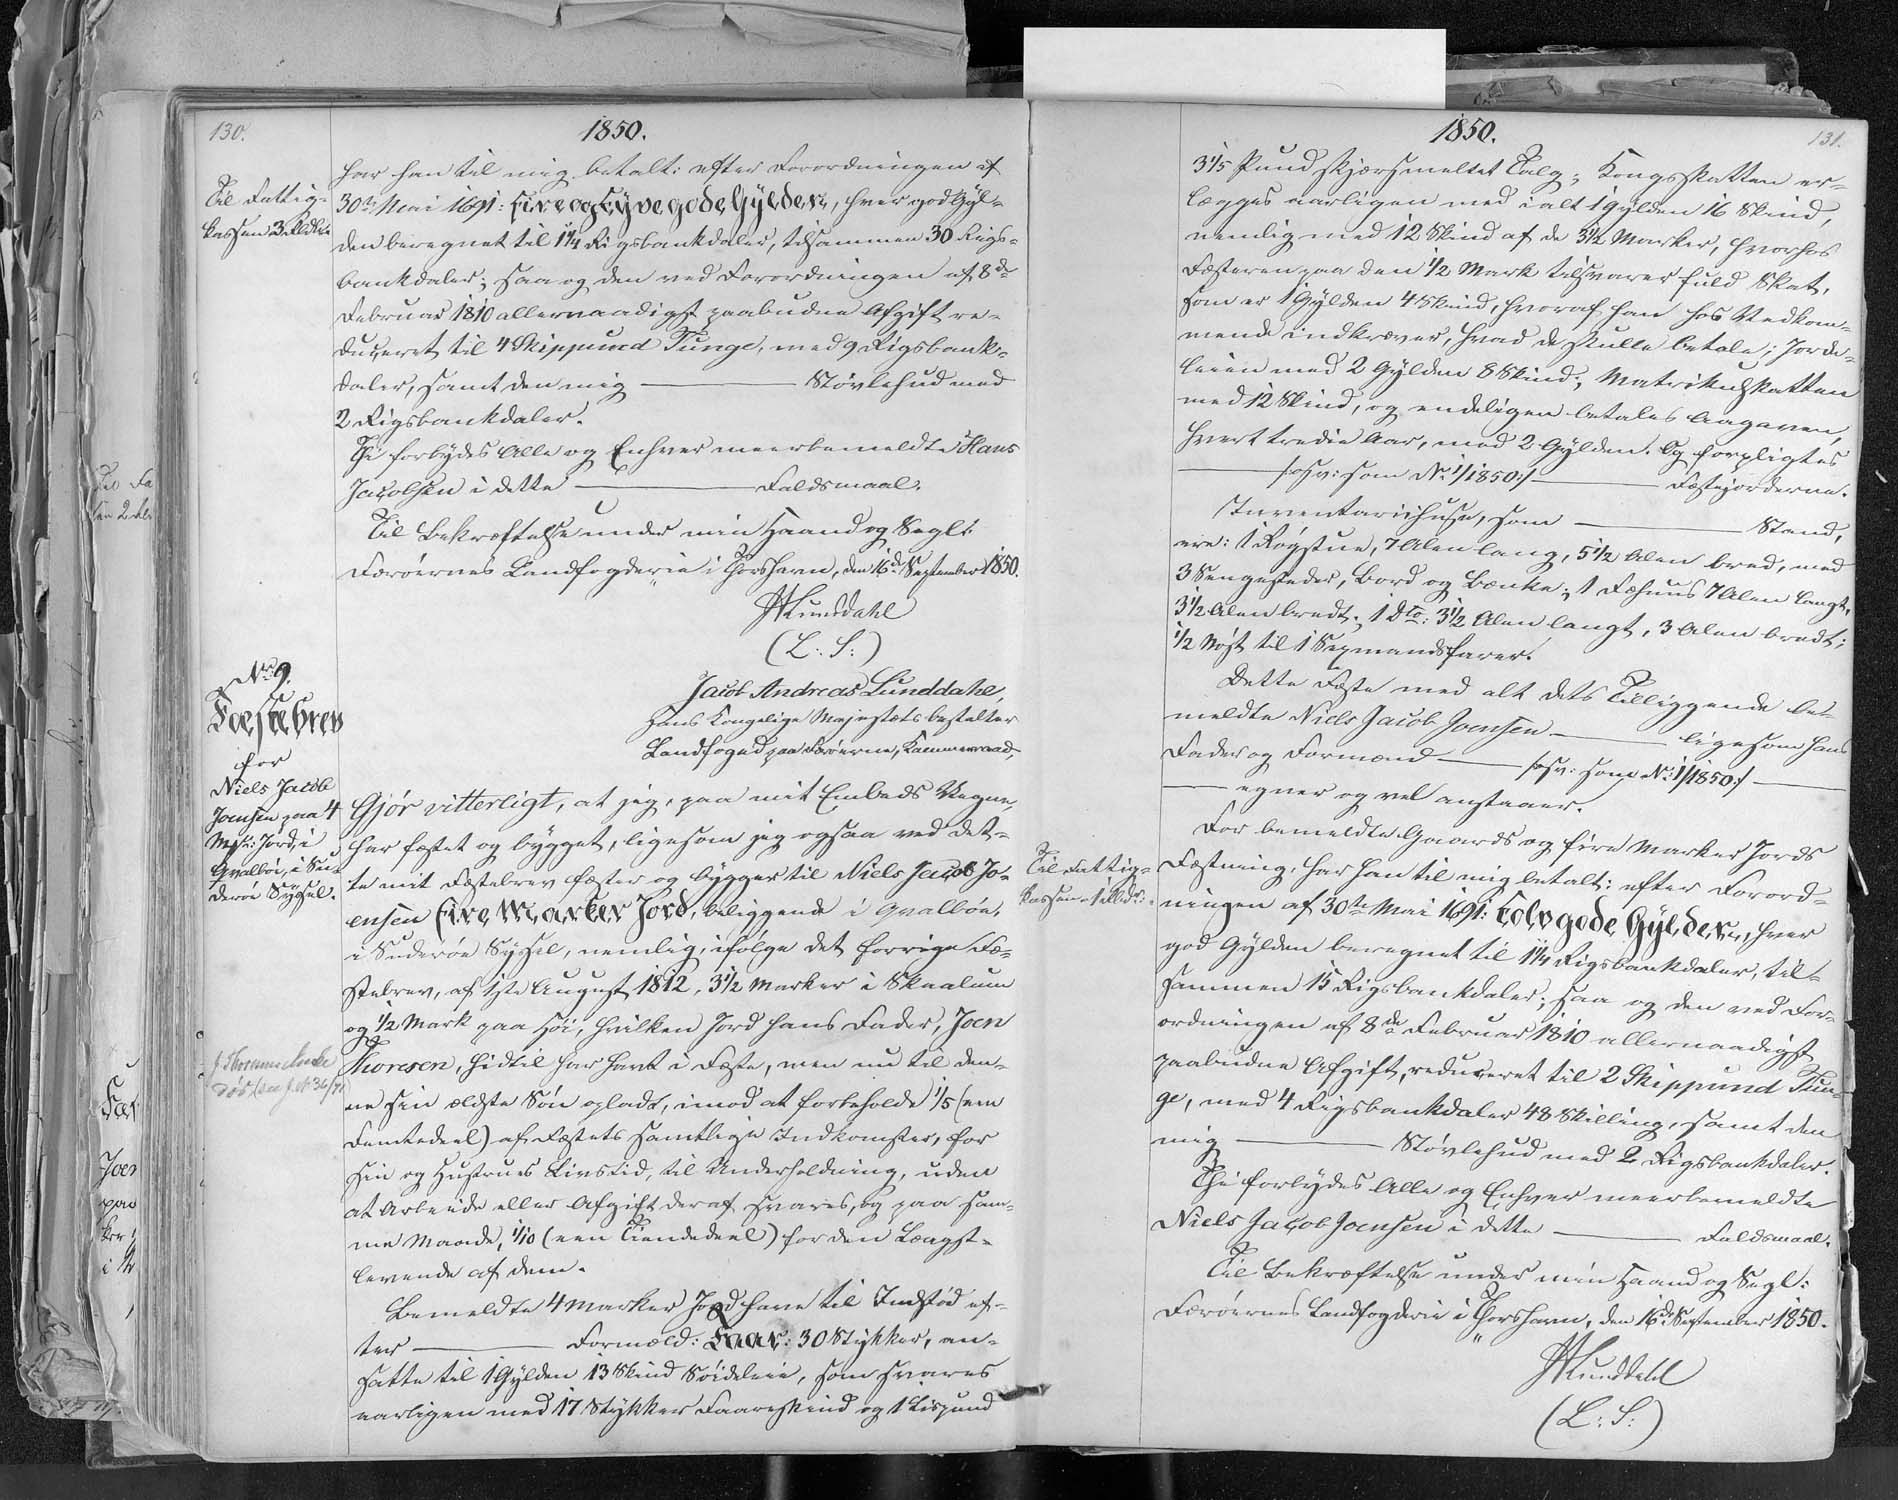 130.
1850.
Til Fattig-
kassen 3 Rbdlr.
har han til mig betalt: efter Forordningen af
30te Mai 1691: Fire og Tyve gode Gylden, hver god Gyl-
den beregnet til 1 1/4 Rigsbankdaler, tilsammen 30 Rigs-
bankdaler; saa og den ved Forordningen af 8de
Februar 1810 allernaadigst paabudne Afgift re-
duceret til 4 Skippund Tunge, med 9 Rigsbank-
daler, samt den mig ——— Støvlehud med
2 Rigsbankdaler.
Thi forbydes Alle og Enhver meerbemeldte Hans
Jacobsen i dette ——— Faldsmaal.
Til Bekræftelse under min Haand og Segl:
Færøernes Landfogderie i Thorshavn, den 16de September 1850.
Lunddahl
(L: S:)
Nr. 9.
Fæstebrev
for
Niels Jacob
Joensen paa 4
Mrk: Jord, i
Qvalböe, i Su-
derøe Syssel.
Jacob Andreas Lunddahl,
Hans Kongelige Majestæts bestalter
Landfoged paa Færøerne, Kammerraad,
Gjør vitterligt, at jeg, paa mit Embeds Vegne,
har fæstet og bygget, ligesom jeg ogsaa ved det-
te mit Fæstebrev fæster og bygger til Niels Jacob Jo-
ensen Fire Marker Jord, beliggende i Qvalbøe,
i Suderøe Syssel, nemlig, ifølge det forrige Fæ-
stebrev, af 1ste August 1812, 3 1/2 Marker i Skaalum
og 1/2 Mark paa Høi, hvilken Jord hans Fader, Joen
Thoresen, hidtil har havt i Fæste, men nu til den-
ne sin ældste Søn opladt, imod at forbeholde 1/5 (een
Femtedeel) af Fæstets samtlige Indkomster, for
sin og Hustrues Livstid, til Underholdning, uden
at Arbeide eller Afgift deraf svares, og paa sam-
me Maade, 1/10 (een Tiendedeel) for den Længst-
levende af dem.
Bemeldte 4 Marker Jord have til Indstød ef-
ter ——— Formeld: Faar: 30 Stykker, an-
satte til 1 Gylden 13 Skind Søideleie, som svares
aarligen med 17 Stykker Faareskind og 1 Lispund
1850.
131.
3 1/5 Pund skjærsmeltet Talg; Kongsskatten er-
lægges aarligen med ialt 1 Gylden 16 Skind,
nemlig med 12 Skind af de 3 1/2 Marker, hvorhos
Fæsteren paa den 1/2 Mark tilsvarer fuld Skat,
som er 1 Gylden 4 Skind, hvoraf han hos Vedkom-
mende indkræver, hvad de skulle betale; Jorde-
leien med 2 Gylden 8 Skind; Matrikulskatten
med 12 Skind, og endeligen betales Aagaven,
hvert tredie Aar, med 2 Gylden. Og forpligtes
——— /:osv: som Nr 1/1850:/ ——— Fæstejorderne.
Inventariihuse, som ——— Stand,
ere: 1 Røgstue, 7 Alen lang, 5 1/2 Alen bred, med
3 Sengesteder, Bord og Bænke; 1 Fæhuus 7 Alen langt,
3 1/2 Alen bredt; 1 Dto: 3 1/2 Alen langt, 3 Alen bredt;
1/2 Nøst til 1 Sexmandsfarer.
Dette Fæste med alt dets Tilliggende be-
meldte Niels Jacob Joensen ——— ligesom hans
Fader og Formænd ——— /:osv: som Nr: 1/1850:/ ———
——— egner og vel anstaaer.
Til Fattig-
For bemeldte Gaards og fire Marker Jords
Fæstning, har han til mig betalt: efter Forord-
ningen af 30te Mai 1691: Tolv gode Gylden, hver
god Gylden beregnet til 1 1/4 Rigsbankdaler, til-
sammen 15 Rigsbankdaler; saa og den ved For-
ordningen af 8de Februar 1810 allernaadigst
paabudne Afgift, reduceret til 2 Skippund Tun-
ge, med 4 Rigsbankdaler 48 Skilling, samt den
mig ——— Støvlehud med 2 Rigsbankdaler.
Thi forbydes Alle og Enhver meerbemeldte
Niels Jacob Joensen i dette ——— Faldsmaal.
Til Bekræftelse under min Haand og Segl:
Færøernes Landfogderie i Thorshavn, den 16de September 1850.
Lunddahl
(L: S:)